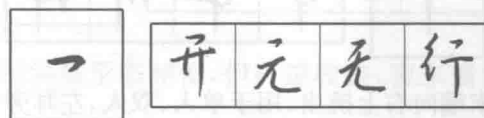 一 开元无行